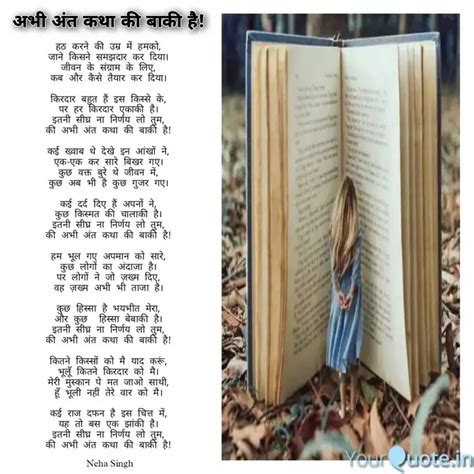 अभी अंत कथा की बाकी है!
हठ करने की उम्र में हमको,
जाने किसने समझदार कर दिया।
जीवन के संग्राम के लिए,
कब और कैसे तैयार कर दिया।
किरदार बहुत हैं इस किस्से के,
पर हर किरदार एकाकी है।
इतनी सीघ्र ना निर्णय लो तुम,
की अभी अंत कथा की बाकी है!
कई ख्वाब थे देखे इन आंखों ने,
एक-एक कर सारे बिखर गए।
कुछ वक्त बुरे थे जीवन में,
कुछ अब भी है कुछ गुजर गए।
कई दर्द दिए हैं अपनों ने,
कुछ किस्मत की चालाकी है।
इतनी सीघ्र ना निर्णय लो तुम,
की अभी अंत कथा की बाकी है!
हम भूल गए अपमान को सारे,
कुछ लोगों का अंदाजा है।
पर लोगों ने जो ज़ख्म दिए,
वह ज़ख्म अभी भी ताजा है।
कुछ हिस्सा है भयभीत मेरा,
और कुछ हिस्सा बेबाकी है।
इतनी सीघ्र ना निर्णय लो तुम,
की अभी अंत कथा की बाकी है!
कितने किस्सों को मै याद करूं,
भूलूँ कितने किरदार को मै।
मेरी मुस्कान पे मत जाओ साथी,
हूँ भूली नहीं तेरे वार को मै।
कई राज दफन है इस चित्त में,
यह तो बस एक झांकी है।
इतनी सीघ्र ना निर्णय लो तुम,
की अभी अंत कथा की बाकी है!
Neha Singh
YourQuote.in